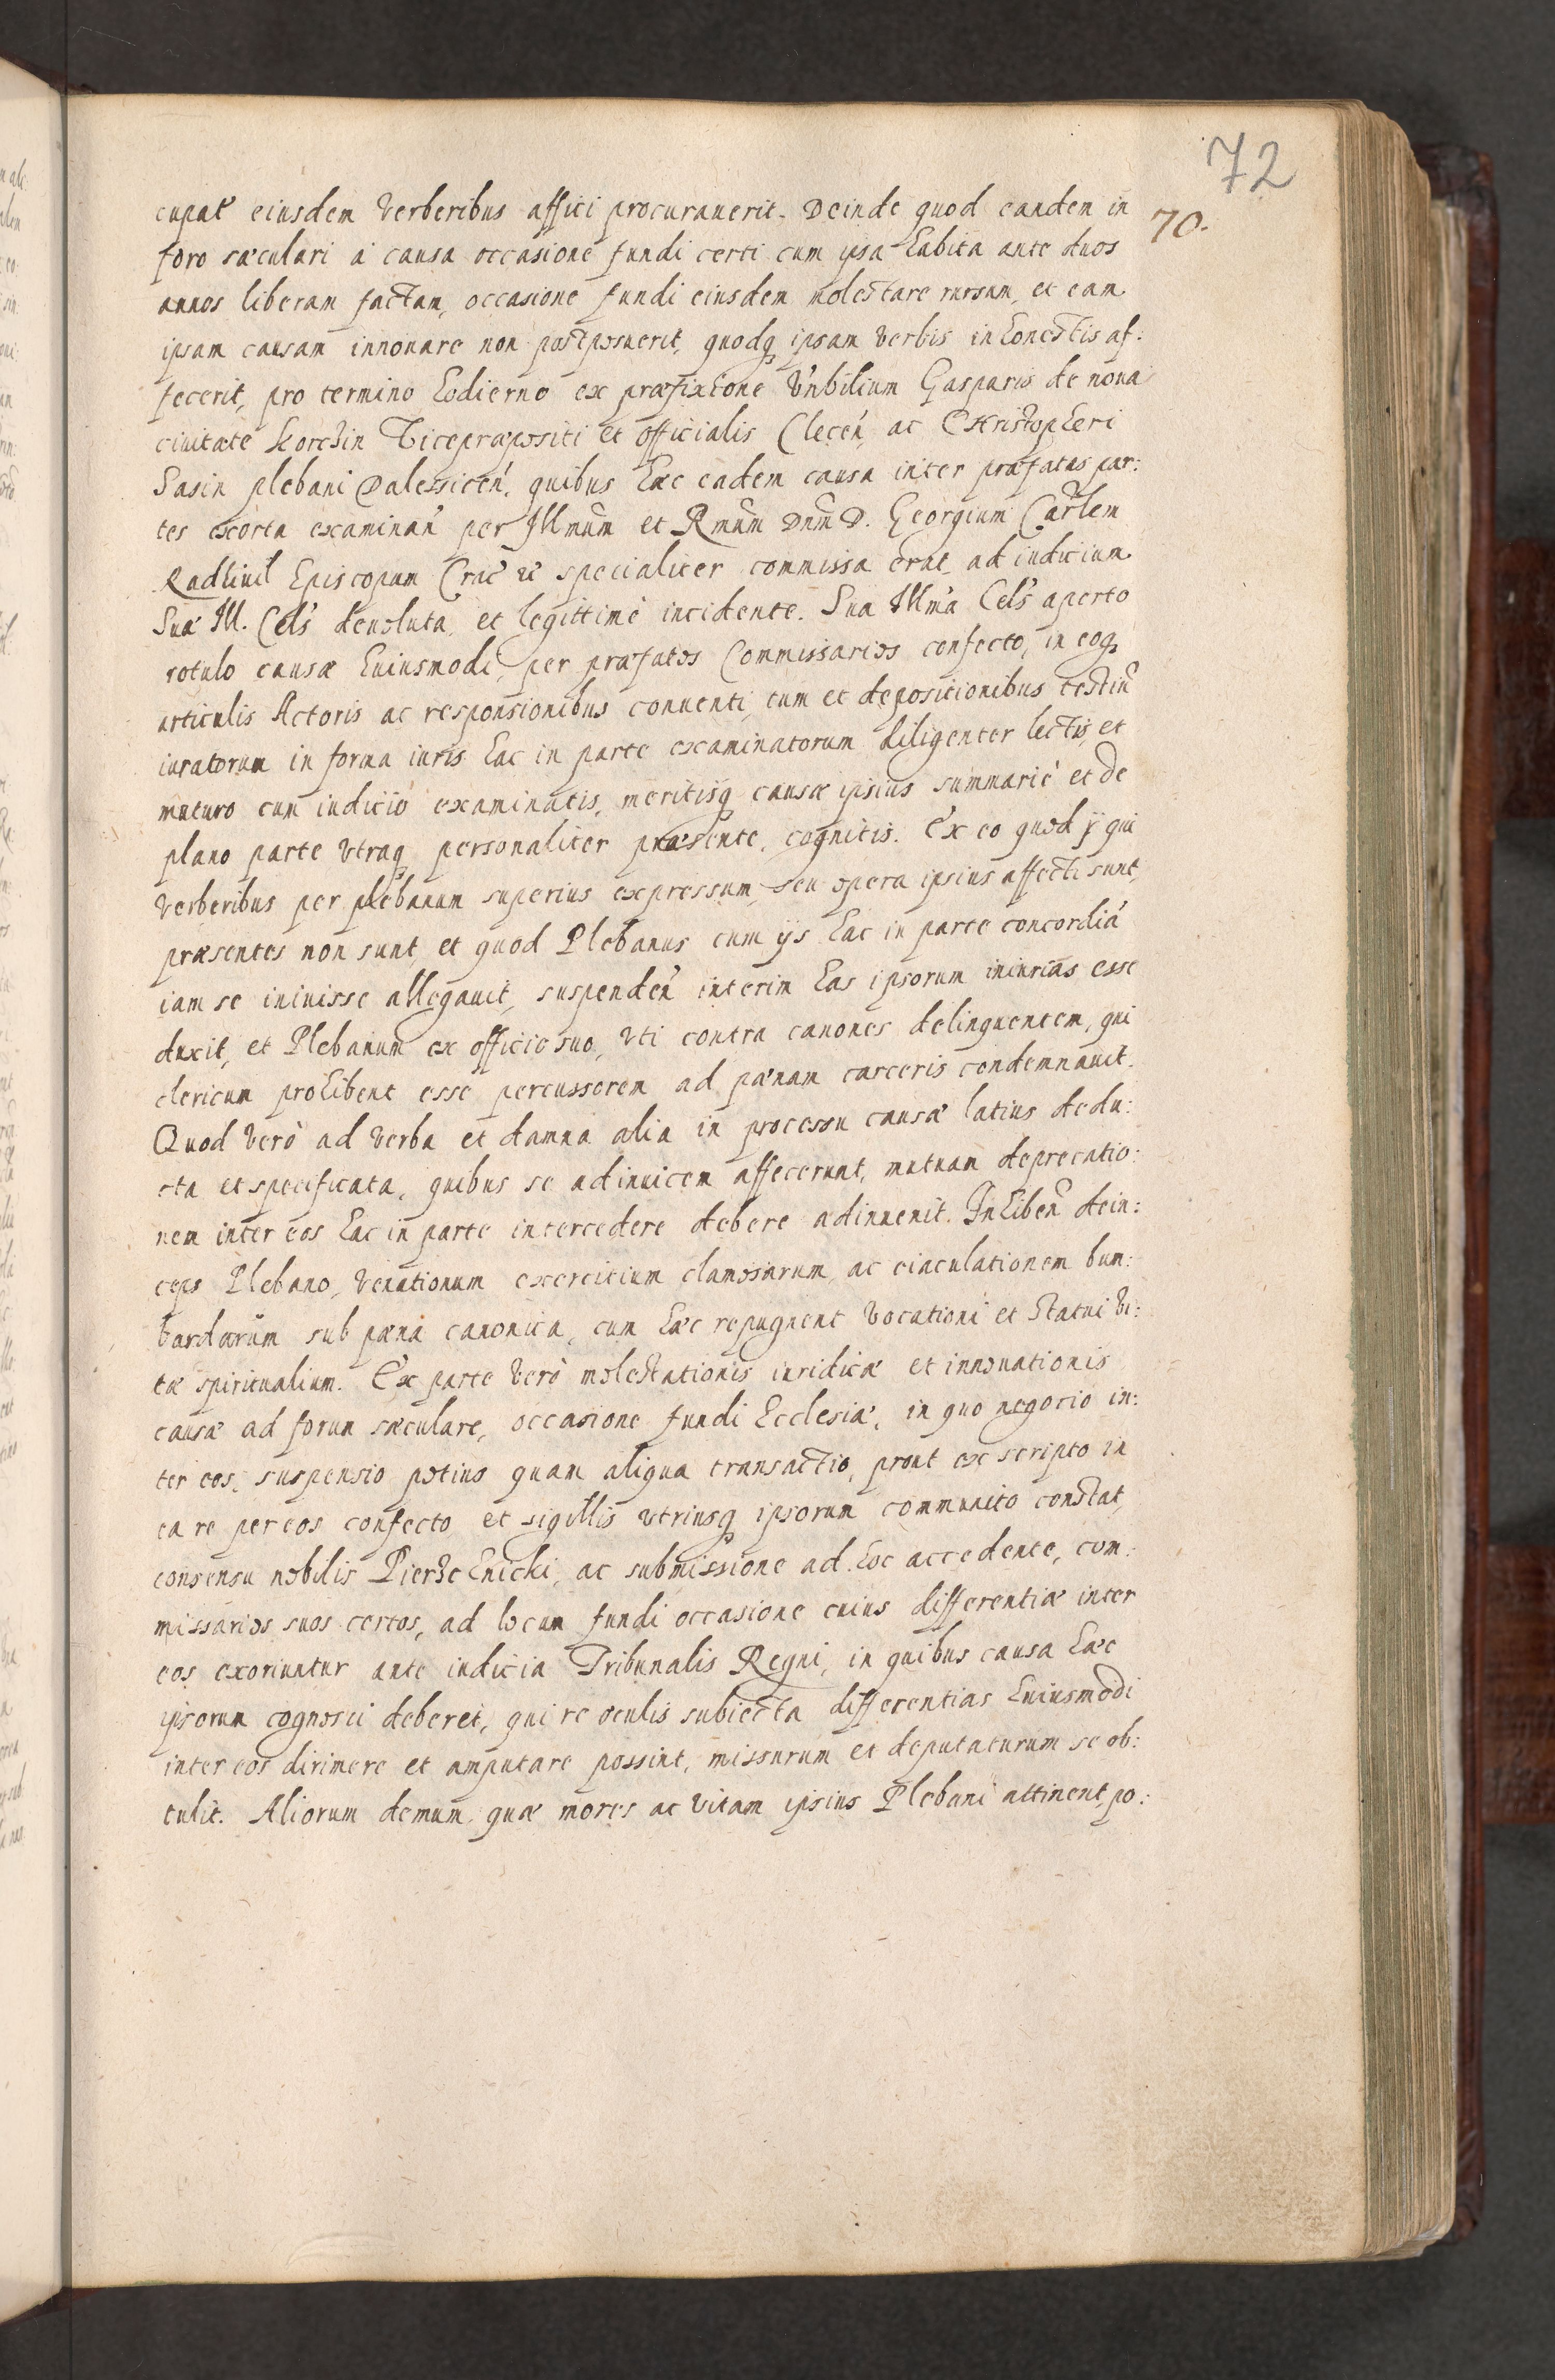 72
70.
cupat̃ eiusdem verberibus affici procurauerit. Deinde quod eandem in
foro sæculari à causa occasione fundi certi cum ipsa habita ante duos
annos liberam factam, occasione fundi eiusdem molestare rursum, et eam
ipsam causam innouare non postposuerit, quodq; ipsam verbis inhonestis af:
fecerit, pro termino hodierno ex præfixione Vnbilium Gasparis de noua
ciuitate Korchin Vicepræpositi et officialis Clecen̄, ac Christopheri
Sasin plebani Dalessicen̄. quibus hæc eadem causa inter præfatas par:
tes exorta examinan̄ per Illmum et Rmum Dnum D. Georgium Carlem
Radliuil Episcopum Crac̄ &c specialiter commissa erat, ad iudicium
Suæ Ill. Cels̄ deuoluta, et legittimè incidente. Sua Illma Cels̄ aperto
rotulo causæ huiusmodi, per præfatos Commissarios confecto, in eoq;
articulis Actoris ac responsionibus conuenti, tum et depositionibus testiū
iuratorum in forma iuris hac in parte examinatorum diligenter lectis, et
maturo cum iudicio examinatis, meritisq; causæ ipsius summariè et de
plano parte vtraq; personaliter præsente, cognitis. Ex eo quod ij qui
verberibus per plebanum superius expressum, seu opera ipsius affecti sunt,
præsentes non sunt, et quod Plebanus cum ijs hac in parte concordiā
iam se iniuisse allegauit, suspenden̄ interim has ipsorum iniurias esse
duxit, et Plebanum ex officio suo, vti contra canones delinquentem, qui
clericum prohibent esse percussorem ad pænam carceris condemnauit.
Quod verò ad verba et damna alia in processu causæ latius dedu:
cta et specificata, quibus se adinuicem affecerunt, mutuam deprecatio:
nem inter eos hac in parte intercedere debere adinuenit. Inhiben̄ dein:
ceps Plebano, venationum exercitium clamosarum, ac eiaculationem bum:
bardarum sub pæna canonica, cum hæc repugnent vocationi et statui vi:
tæ spiritualium. Ex parte verò molestationis iuridicæ et innouationis
causæ ad forum sæculare, occasione fundi Ecclesiæ, in quo negocio in:
ter eos, suspensio potius quam aliqua transactio, prout ex scripto in
ea re per eos confecto et sigillis vtriusq; ipsorum communito constat,
consensu nobilis Pierzchnicki, ac submissione ad hoc accedente, com:
missarios suos certos, ad locum fundi occasione cuius differentiæ inter
eos exoriuntur ante iudicia Tribunalis Regni, in quibus causa hæc
ipsorum cognosci deberet, qui re oculis subiecta differentias huiusmodi
inter eos dirimere et amputare possint, missurum et deputaturum se ob:
tulit. Aliorum demum quæ mores ac vitam ipsius Plebani attinent, po: